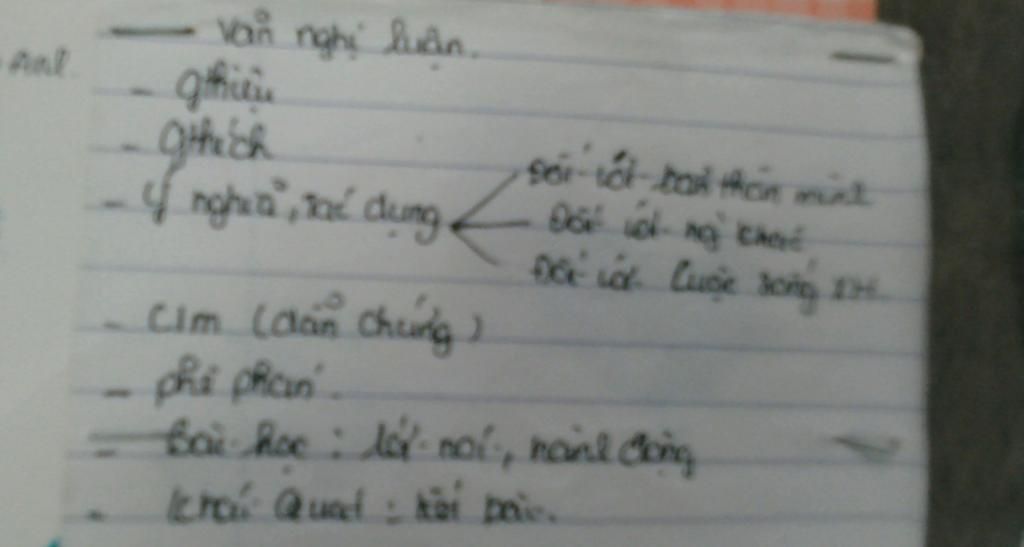 Văn nghị luận.
- gthiệu
- gthích
- Ý nghĩa, tác dụng
Đối với bản thân mình
Đối với ng` khác
Đối với cuộc sống XH.
- C/m (dẫn chứng)
- phê phán.
- Bài học: lời nói, hành động
- Khái Quát: kết bài.